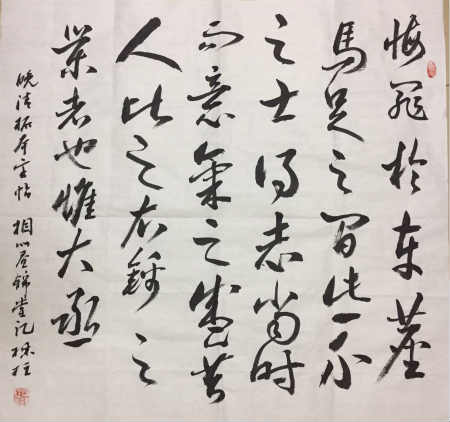 悔罪於車塵
馬足之間此一介
之士得志當時
而意氣之盛昔
人比之衣錦之
榮者也惟大丞
晚清拓本字帖 相州昼錦堂記